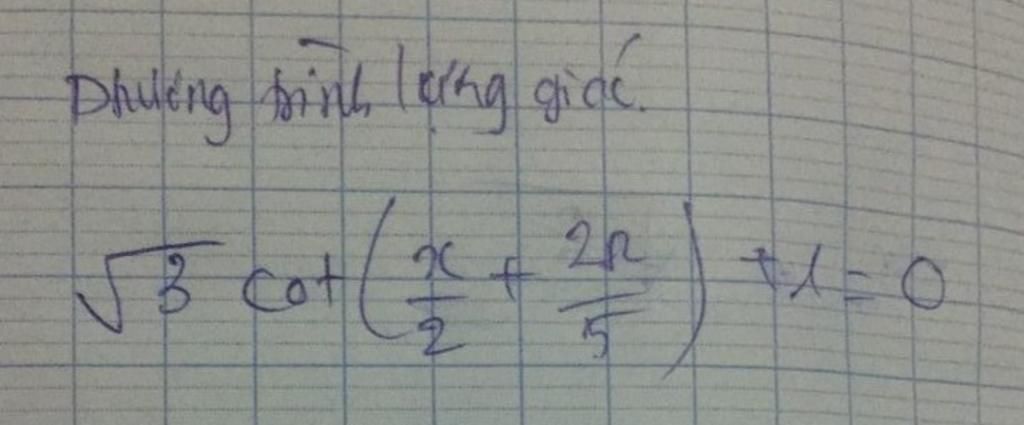 Phương trình lượng giác.
√3 cot(x/2 + 2π/5) + 1 = 0